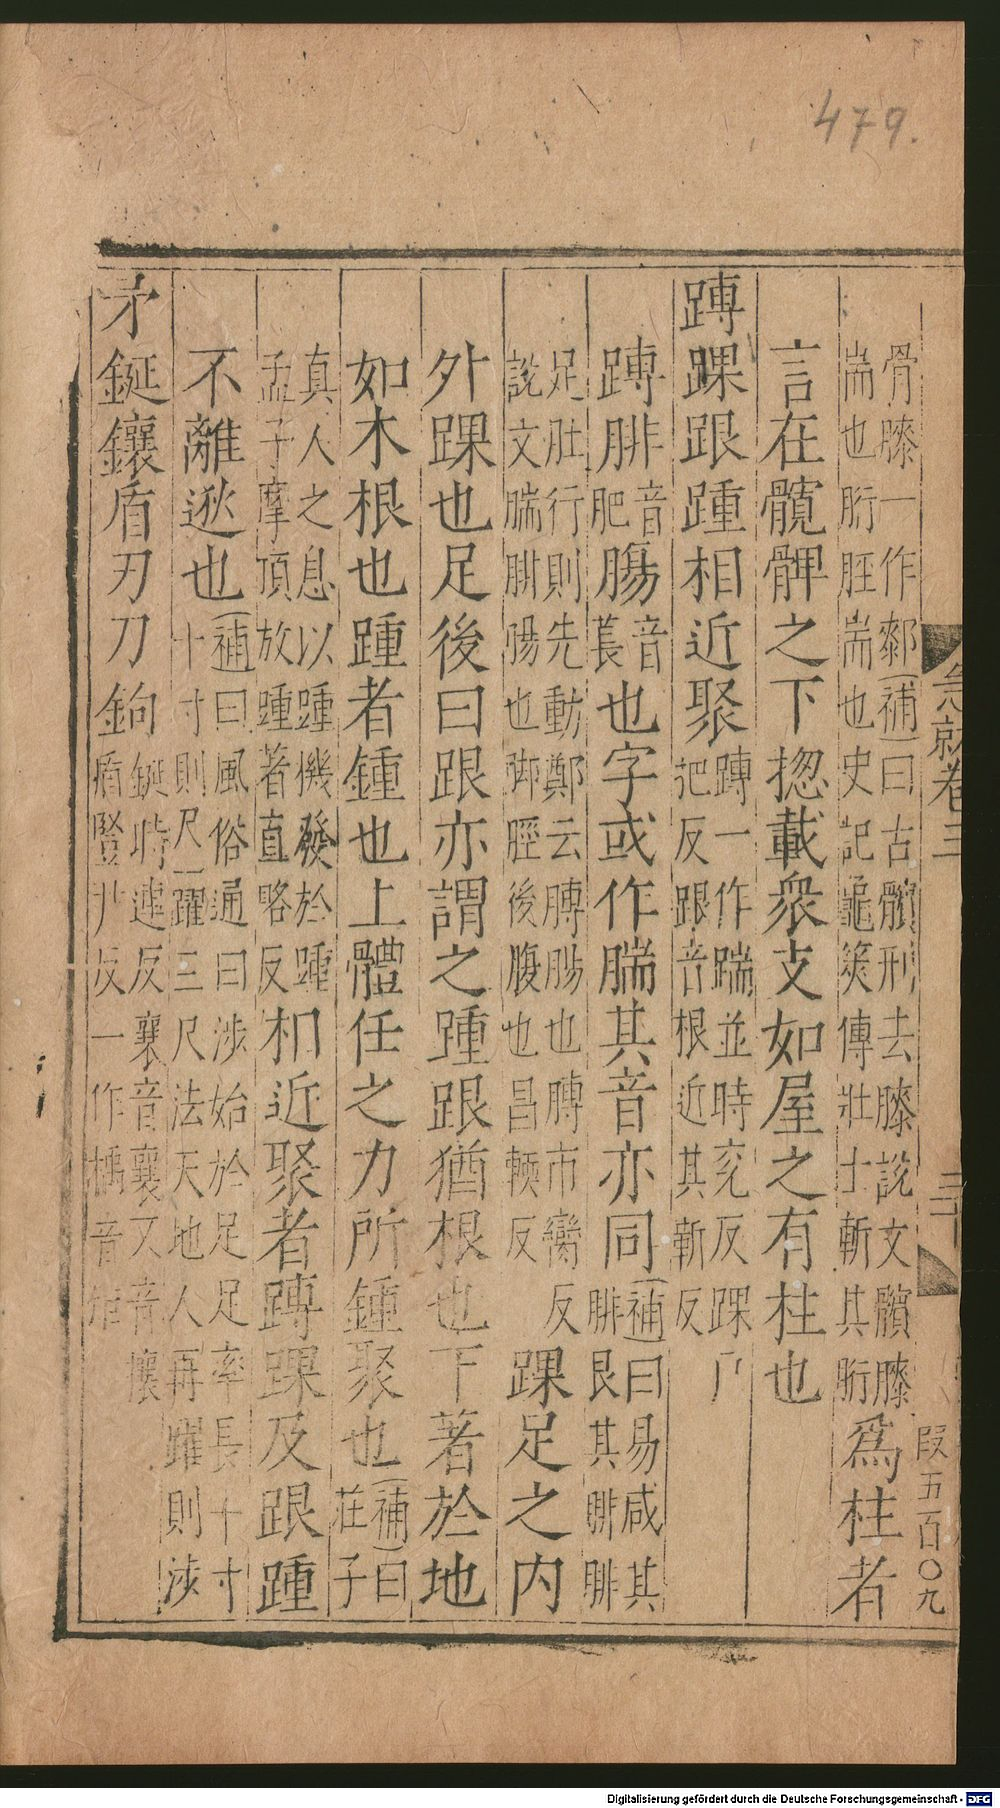 479.
急就卷三
三十
段五百〇九
骨膝一作䣛補曰古髕刑去膝說文髕膝
耑也胻脛耑也史記龜筴傳壯士斬其胻
為柱者
言在髖髀之下揔載衆支如屋之有柱也
踝跟踵相近聚
一作踹並時兖反踝
反跟音根近其靳反
腓
音
肥
腸
音
萇
也字或作腨其音亦同
補曰易咸其
腓艮其腓腓
足肚行則先動鄭云膊腸也膊市臠反
說文腨腓腸也䏶脛後腹也昌耎反
踝足之内
外踝也足後曰跟亦謂之踵跟猶根也下著於地
如木根也踵者鍾也上體任之力所鍾聚也
補曰
莊子
真人之息以踵機發於踵
孟子摩頂放踵著直略反
相近聚者踝及跟踵
不離逖也
補曰風俗通曰涉始於足足率長十寸
十寸則尺一躍三尺法天地人再躍則涉
矛鋋鑲盾刃刀鉤
鋋時連反
盾豎尹反一作楯音
襄音襄又音攘
Digitalisierung gefördert durch die Deutsche Forschungsgemeinschaft - DFG